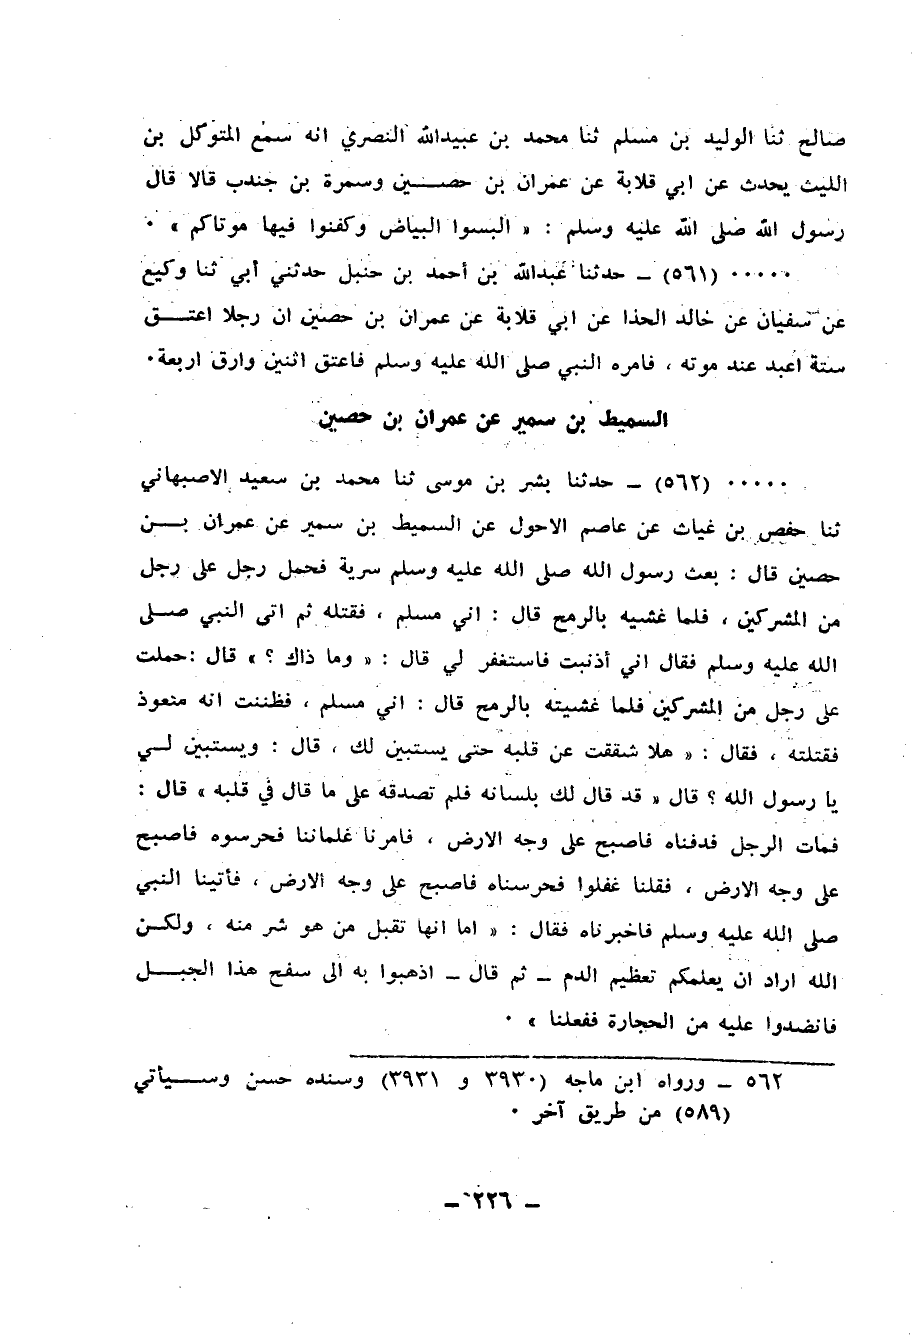 صالح ثنا الوليد بن مسلم ثنا محمد بن عبيدالله النصري انه سمع المتوكل بن
الليث يحدث عن ابي قلابة عن عمران بن حصين وسمرة بن جندب قالا قال
رسول الله صلى الله عليه وسلم : « البسوا البياض وكفنوا فيها موتاكم » .
..... (٥٦١) ـ حدثنا عبدالله بن أحمد بن حنبل حدثني أبي ثنا وكيع
عن سفيان عن خالد الحذا عن ابي قلابة عن عمران بن حصين ان رجلا اعتق
ستة اعبد عند موته ، فامره النبي صلى الله عليه وسلم فاعتق اثنين وارق اربعة .
السميط بن سمير عن عمران بن حصين
..... (٥٦٢) ـ حدثنا بشر بن موسى ثنا محمد بن سعيد الاصبهاني
ثنا حفص بن غياث عن عاصم الاحول عن السميط بن سمير عن عمران بن
حصين قال : بعث رسول الله صلى الله عليه وسلم سرية فحمل رجل على رجل
من المشركين ، فلما غشيه بالرمح قال : اني مسلم ، فقتله ثم اتى النبي صلى
الله عليه وسلم فقال اني أذنبت فاستغفر لي قال : « وما ذاك ؟ » قال : حملت
على رجل من المشركين فلما غشيته بالرمح قال : اني مسلم ، فظننت انه متعوذ
فقتلته ، فقال : « هلا شققت عن قلبه حتى يستبين لك ، قال : ويستبين لي
يا رسول الله ؟ قال « قد قال لك بلسانه فلم تصدقه على ما قال في قلبه » قال :
فمات الرجل فدفناه فاصبح على وجه الارض ، فامرنا غلماننا فحرسوه فاصبح
على وجه الارض ، فقلنا غفلوا فحرسناه فاصبح على وجه الارض ، فأتينا النبي
صلى الله عليه وسلم فاخبرناه فقال : « اما انها تقبل من هو شر منه ، ولكن
الله اراد ان يعلمكم تعظيم الدم ـ ثم قال ـ اذهبوا به الى سفح هذا الجبل
فانضدوا عليه من الحجارة ففعلنا » .
٥٦٢ ـ ورواه ابن ماجه (٣٩٣٠ و ٣٩٣١) وسنده حسن وسيأتي
(٥٨٩) من طريق آخر .
ـ ٢٢٦ ـ